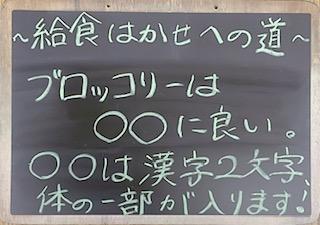 ～給食はかせへの道～
ブロッコリーは
○○に良い。
○○は漢字2文字、
体の一部が入ります!